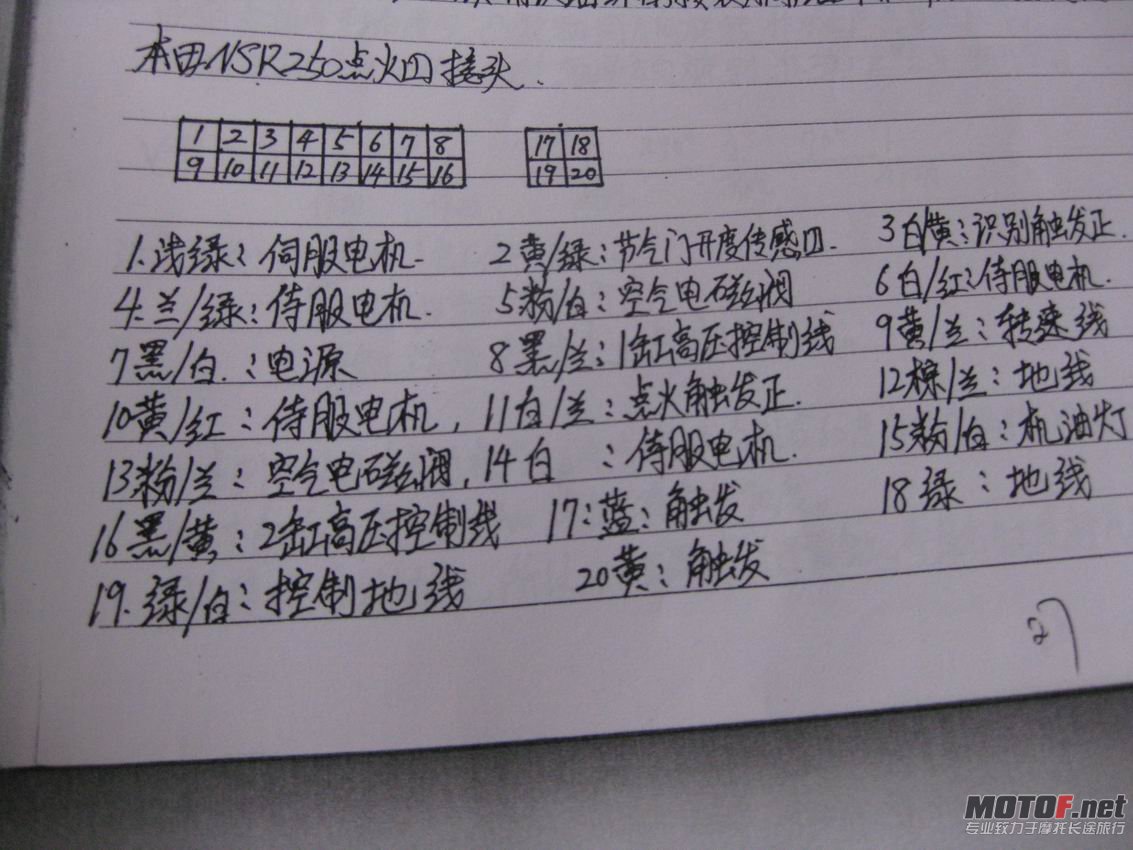 本田NSR250点火口接头.
1 2 3 4 5 6 7 8 17 18
9 10 11 12 13 14 15 16 19 20
1.浅绿:伺服电机. 2黄/绿:节气门开度传感口. 3白/黄:识别触发正.
4.兰/绿:侍服电机. 5粉/白:空气电磁阀 6白/红:侍服电机.
7黑/白.:电源 8黑/兰:1缸高压控制线 9黄/兰:转速线
10黄/红:侍服电机, 11白/兰:点火触发正. 12棕/兰:地线
13粉/兰:空气电磁阀, 14白 :侍服电机. 15粉/白:机油灯
16黑/黄:2缸高压控制线 17:蓝:触发 18绿:地线
19.绿/白:控制地线 20黄:触发
27
MOTOF.net
专业致力于摩托长途旅行